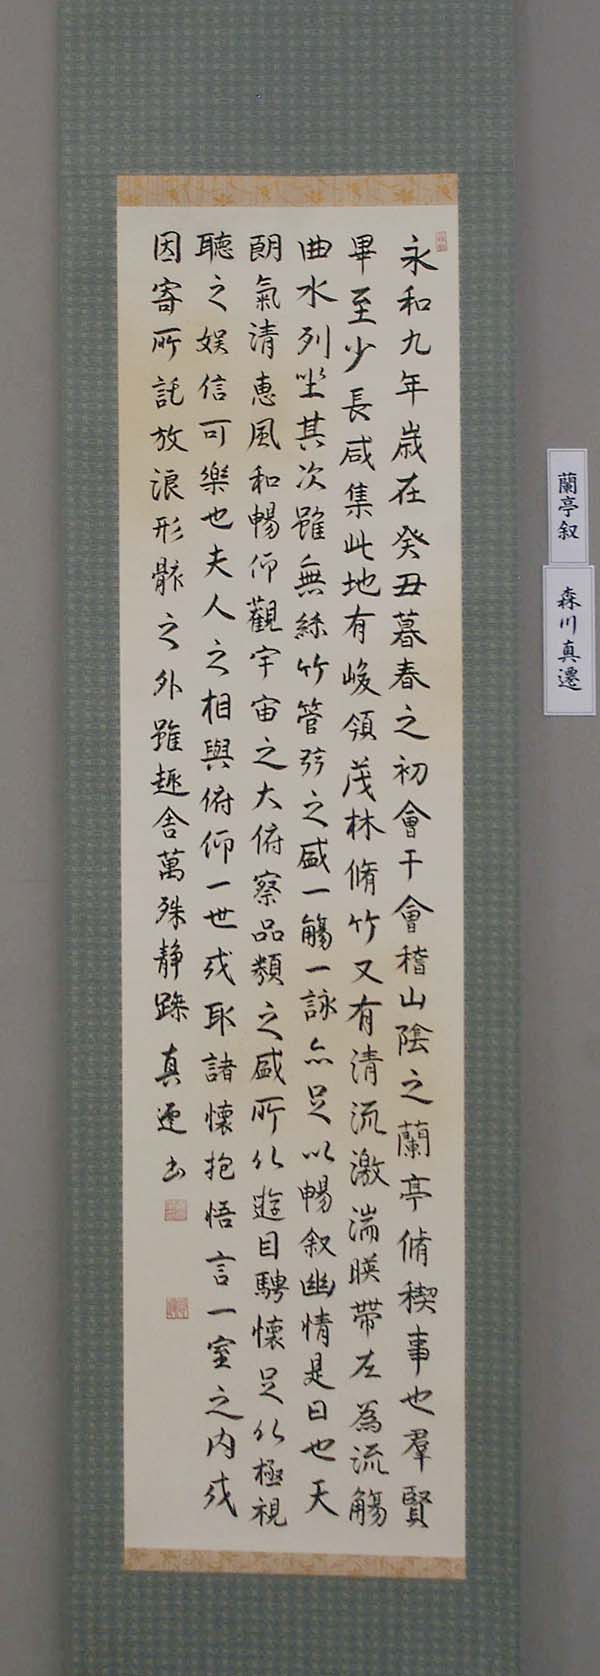 永和九年歳在癸丑暮春之初會于會稽山陰之蘭亭脩稧事也羣賢
畢至少長咸集此地有峻領茂林脩竹又有清流激湍暎帶左為流觴
曲水列坐其次雖無絲竹管弦之盛一觴一詠亦足以暢叙幽情是日也天
朗氣清恵風和暢仰觀宇宙之大俯察品類之盛所以遊目騁懐足以極視
聽之娯信可樂也夫人之相與俯仰一世或取諸懐抱悟言一室之内或
因寄所託放浪形骸之外雖趣舎萬殊静躁真遷書
蘭亭叙
森川真遷